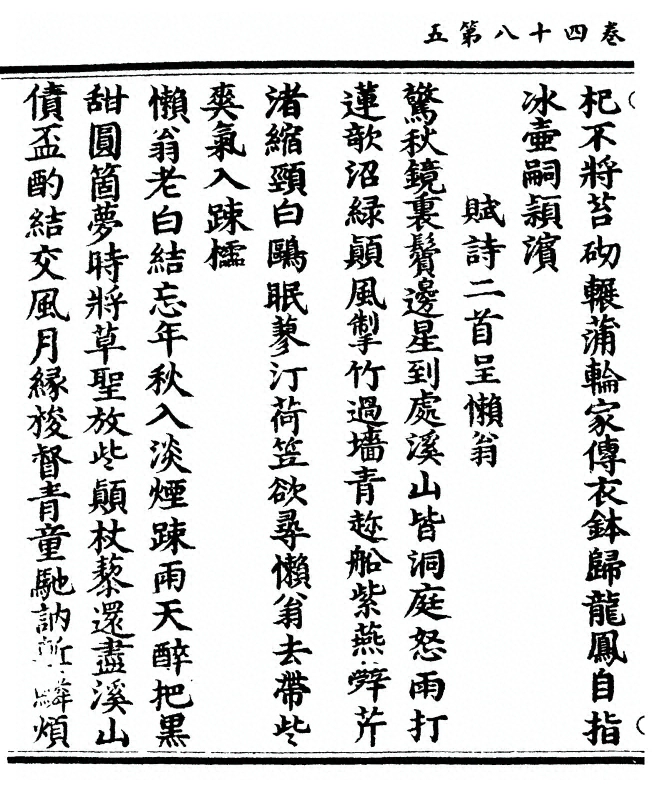 卷四十八第五
杞不將苔砌輾蒲輪家傳衣鉢歸龍鳳自指
冰壺嗣潁濱
賦詩二首呈懶翁
驚秋鏡裏鬢邊星到處溪山皆洞庭怒雨打
蓮欹沼綠顛風掣竹過墻青趂船紫燕辭芹
渚縮頸白鷗眠蓼汀荷笠欲尋懶翁去帶些
爽氣入踈櫺
懶翁老白結忘年秋入淡煙踈雨天醉把黑
甜圓箇夢時將草聖放些顛杖藜還盡溪山
債盃酌結交風月緣梭督青童馳訥 煩